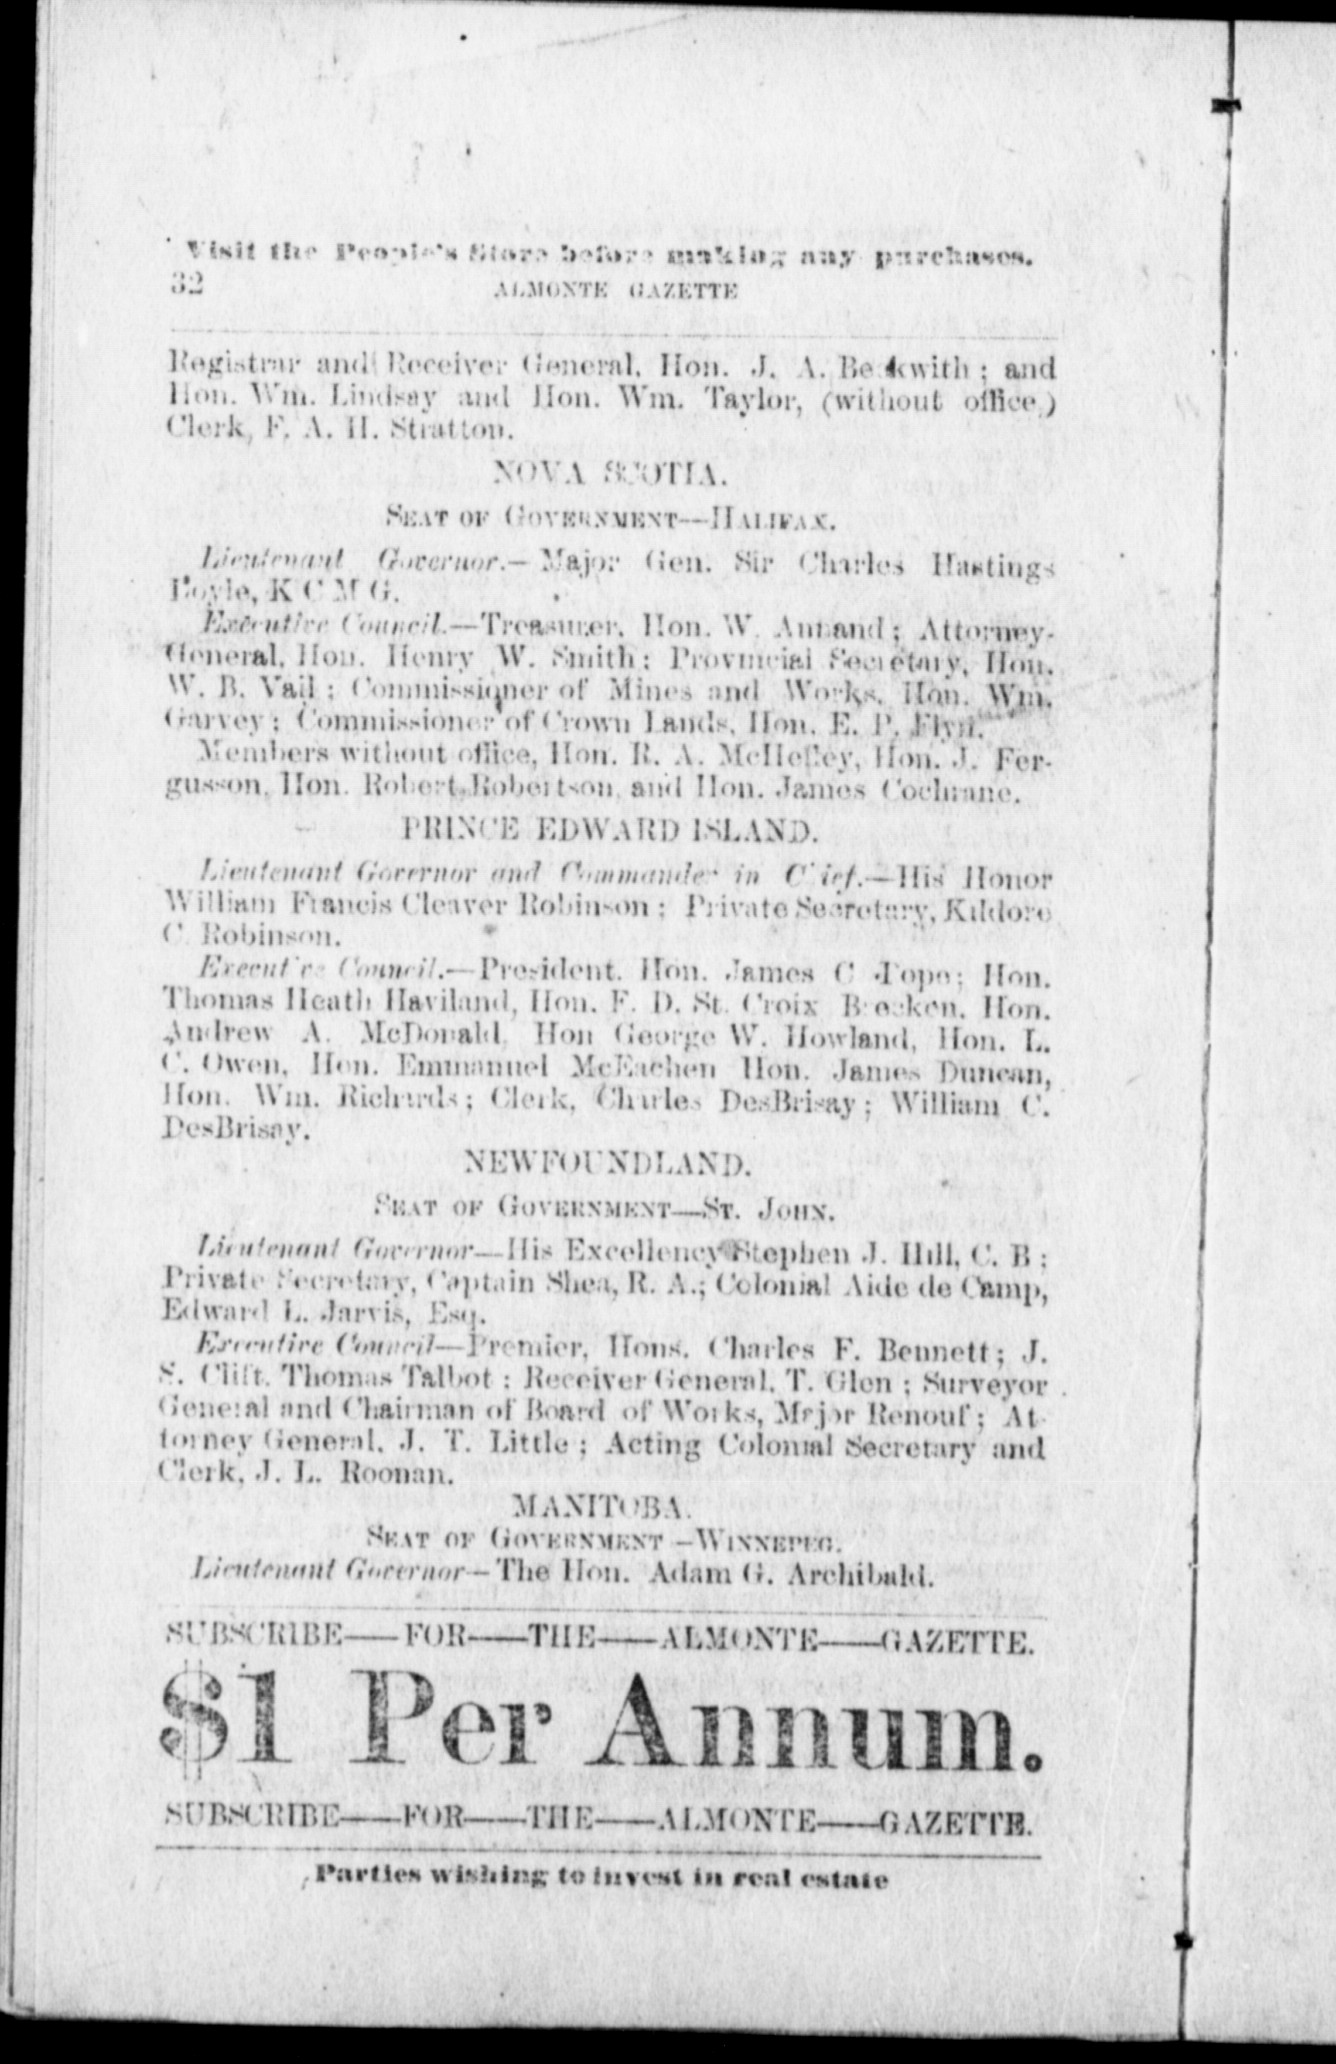 Visit the People's Store before making any purchases.
32
ALMONTE GAZETTE
Registrar and Receiver General, Hon. J. A. Beckwith ; and
Hon. Wm. Lindsay and Hon. Wm. Taylor, (without office,)
Clerk, F. A. H. Stratton.
NOVA SCOTIA.
SEAT OF GOVERNMENT—HALIFAX.
Lieutenant Governor.—Major Gen. Sir Charles Hastings
Doyle, K C M G.
Executive Council.—Treasurer, Hon. W. Annand ; Attorney-
General, Hon. Henry W. Smith ; Provincial Secretary, Hon.
W. B. Vail ; Commissioner of Mines and Works, Hon. Wm.
Garvey ; Commissioner of Crown Lands, Hon. E. P. Flyn.
Members without office, Hon. R. A. McHeffey, Hon. J. Fer-
gusson, Hon. Robert Robertson, and Hon. James Cochrane.
PRINCE EDWARD ISLAND.
Lieutenant Governor and Commander in Chief.—His Honor
William Francis Cleaver Robinson ; Private Secretary, Kildore
C. Robinson.
Executive Council.—President, Hon. James C. Pope; Hon.
Thomas Heath Haviland, Hon. F. D. St. Croix Brecken, Hon.
Andrew A. McDonald, Hon George W. Howland, Hon. L.
C. Owen, Hon. Emmanuel McEachen Hon. James Duncan,
Hon. Wm. Richards; Clerk, Charles DesBrisay ; William C.
DesBrisay.
NEWFOUNDLAND.
SEAT OF GOVERNMENT—ST. JOHN.
Lieutenant Governor—His Excellency Stephen J. Hill, C. B ;
Private Secretary, Captain Shea, R. A.; Colonial Aide de Camp,
Edward L. Jarvis, Esq.
Executive Council—Premier, Hons. Charles F. Bennett; J.
S. Clift, Thomas Talbot ; Receiver General, T. Glen ; Surveyor
General and Chairman of Board of Works, Major Renouf ; At-
torney General, J. T. Little ; Acting Colonial Secretary and
Clerk, J. L. Roonan.
MANITOBA.
SEAT OF GOVERNMENT—WINNEPEG.
Lieutenant Governor—The Hon. Adam G. Archibald.
SUBSCRIBE——FOR——THE——ALMONTE——GAZETTE.
$1 Per Annum.
SUBSCRIBE——FOR——THE——ALMONTE——GAZETTE.
Parties wishing to invest in real estate